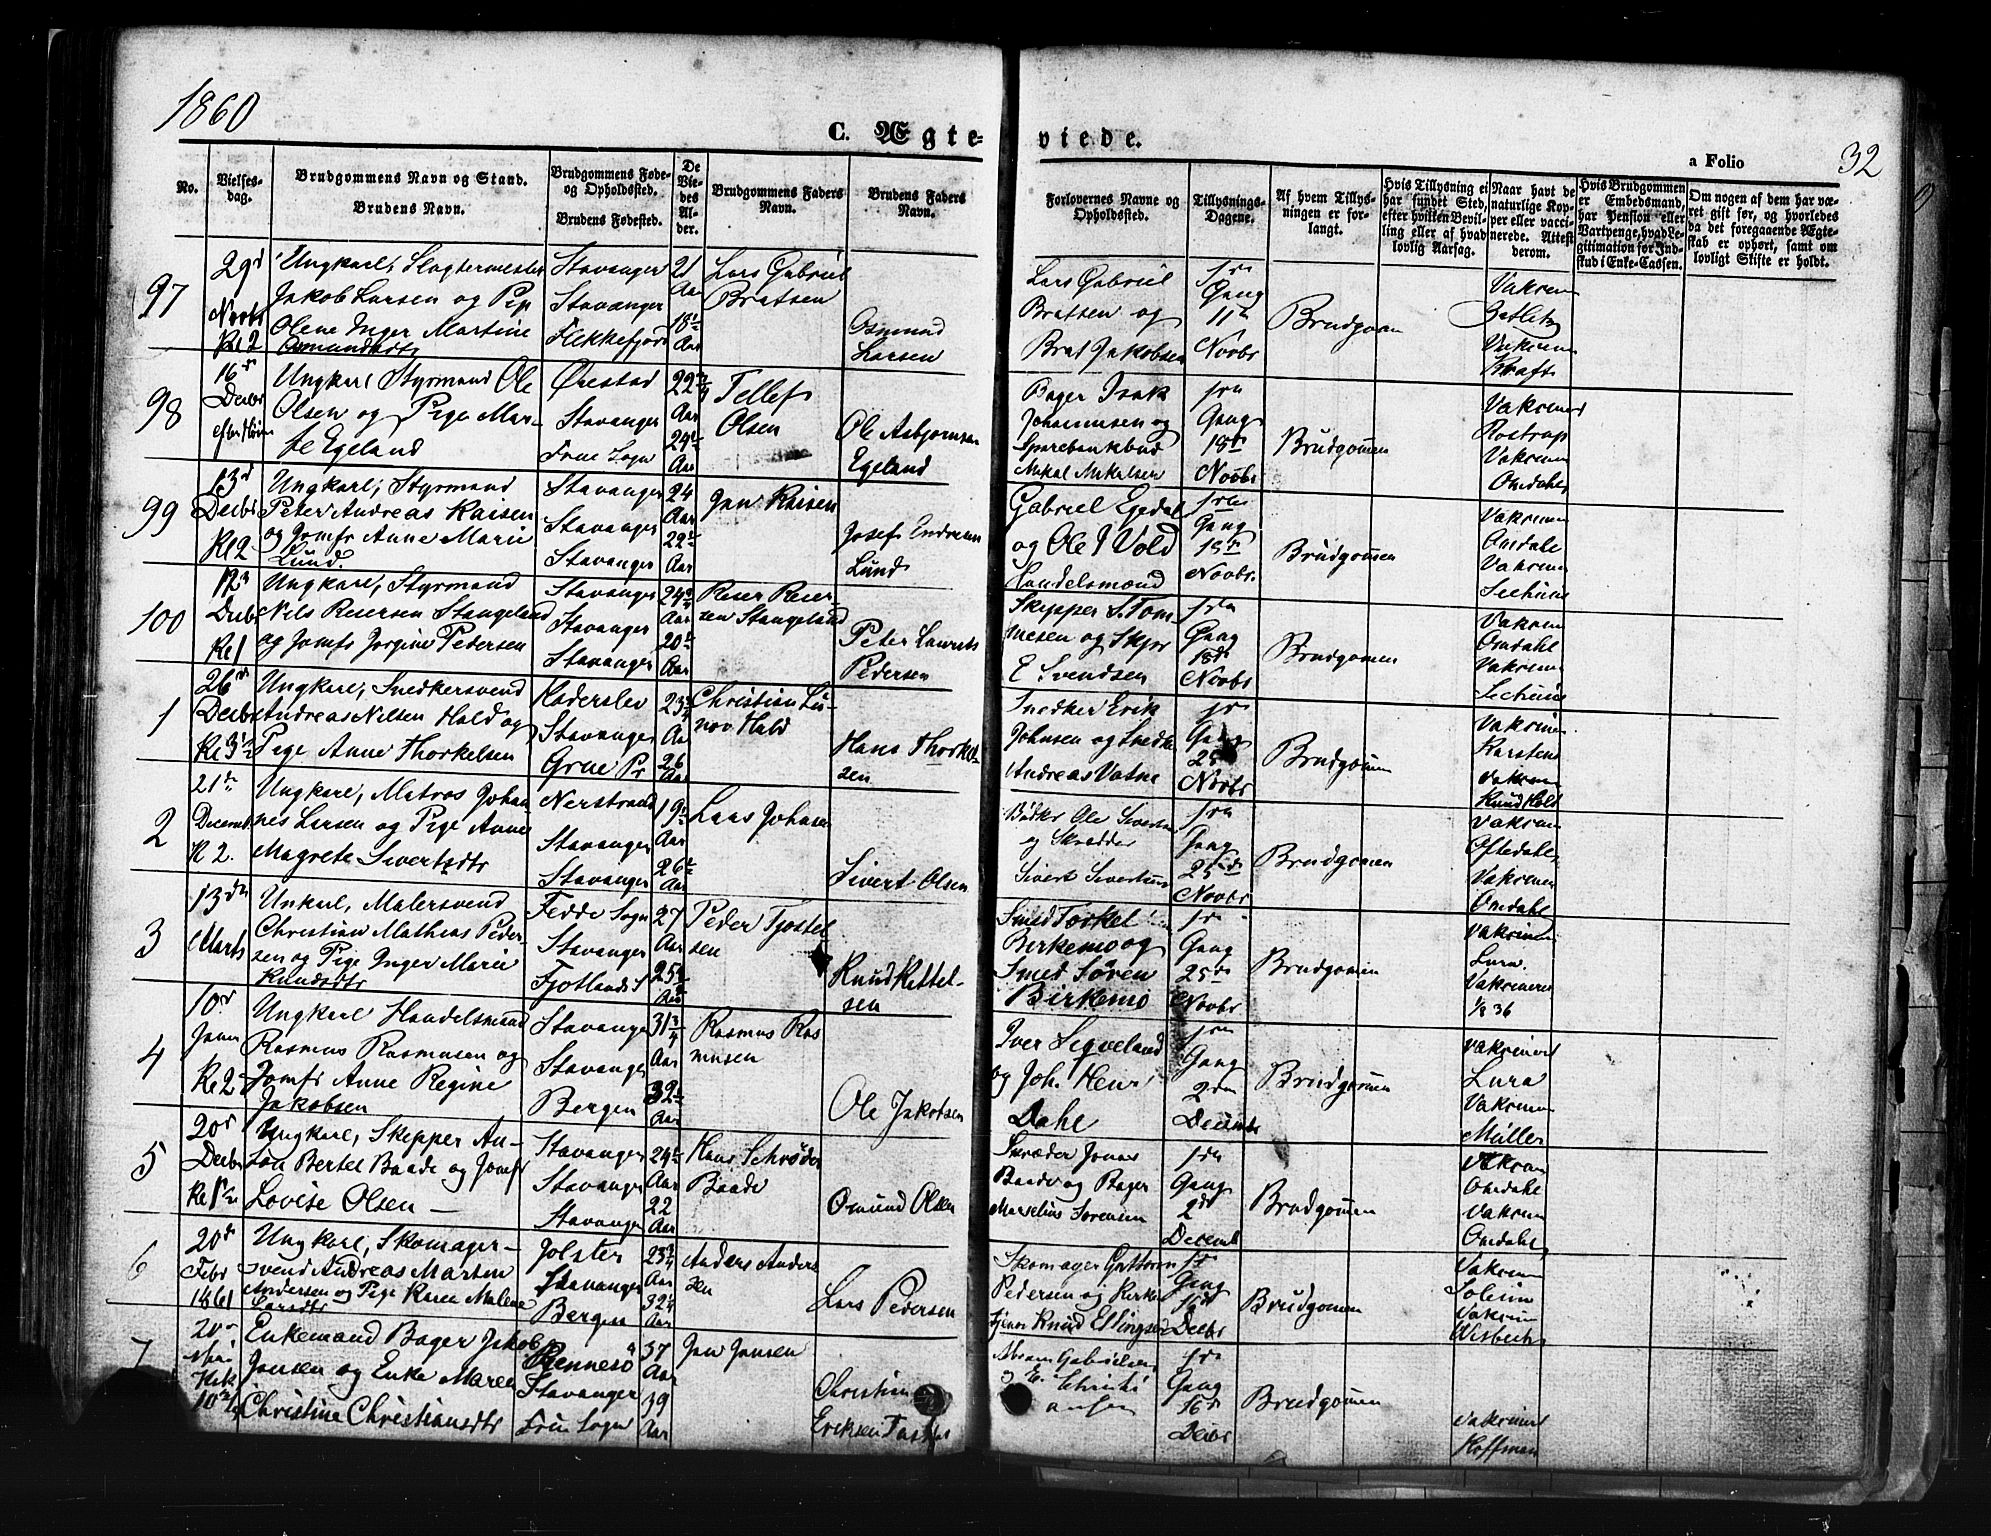 1860
C. Ægte-
viede.
a Folio
32
No.
Vielses-
dag.
Brudgommens Navn og Stand.
Brudens Navn.
Brudgommens Føde-
og Opholdssted.
Brudens Fødested.
De
Vie-
des
Al-
der.
Brudgommens Faders
Navn.
Brudens Faders
Navn.
Forlovernes Navne og
Opholdssted.
Tillysnings-
Dagene.
Af hvem Tillys-
ningen er for-
langt.
Hvis Tillysning ei
har fundet Sted,
efter hvilken Bevil-
ling eller af hvad
lovlig Aarsag.
Naar havt de
naturlige Kop-
per eller vacci-
nerede. Attest
derom.
Hvis Brudgommen
er Embedsmand,
har Pension eller
Vartpenge, hvad Le-
gitimation for Ind-
skud i Enke-Cassen.
Om nogen af dem har væ-
ret gift før, og hvorledes
da det foregaaende Ægte-
skab er ophørt, samt om
lovligt Skifte er holdt.
97
29d
Novbr
Kl 2
Ungkarl, Slagtermester
Jakob Larsen og Pip
Olene Inger Martine
Osmundsdtr
Stavanger
Stavanger
Flekkefjord
21
Aar
18½
Aar
Lars Gabriel
Bratsen
Osmund
Larsen
Lars Gabriel
Bratsen og
Brat Jakobsen
fra
Gang
11te
Novbr
Brudgomen
Vakcin
Vakcin
Kraft
98
16d
Decbr
Ungkarl Styrmand Ole
Olsen og Pige Mar-
te Egeland
Ørestad
Stavanger
Frue Sogn
22¾
Aar
24½
Aar
Tellef
Olsen
Ole Asbjørnsen
Egeland
Bager Isak
Johannesen og
Sparebankbud
Mikal Mikalsen
fra
Gang
18de
Novbr
Brudgommen
Vakcinert
Rostrup
Vakcinen
Omdahl
99
13d
Decbr
Kl 2
Ungkarl, Styrmand
Peter Andreas Kaisen
og Jomfr Anne Marie
Lund.
Stavanger
Stavanger
Stavanger
24
Aar
22½
Aar
Jan Kaisen
Josef Endresen
Lund
Gabriel Egedal
og Ole J Vold
Handelsmænd
fra
Gang
18de
Novbr.
Brudgommen
Vakcinen
Omdahl
Vakcinen
100
Decbr
Kl 1
Ungkarl, Styrmand
Nils Reiersen Stangeland
og Jomfr Jorgine Pedersen
Stavanger
Stavanger
Stavanger
24¾
Aar
20½
Aar
Reier Reier-
sen Stangeland
Peter Laurits
Pedersen
Skipper S. Tom
mesen og Skpr
E Svendsen
fra
Gang
18de
Novbr
Brudgomen
Vakcin
Omdahl
Vakcinen
1
26d
Decbr
Kl 3½
Ungkarl, Snedkersvend
Andreas Nilsen Hald og
Pige Anne Thorkelsen
Haderslev
Stavanger
Grue Pr
23¾
Aar
26
Aar
Christian Lu-
nov Hald
Hans Thorkel-
sen
Snedker Erik
Johnsen og Snedk
Andreas Vatne
fra
Gang
25
Novbr
Brudgomen
Vakcinen
Karstens
Vakcinen
Knud Hold
2
21de
Decemb
Kl 2.
Ungkarl, Matros Johan
nes Larsen og Pige Anne
Magrete Sivertsdtr
Nerstrand
Stavanger
Stavanger
19½
Aar
26½
Aar
Lars Johnsen
Sivert Olsen
Bødker Ole Sivertsen
og Skrædder
Sivert Sivertsen
fra
Gang
25de
Novbr
Brudgomen
Vakcinen
Oftedahl
Vakcinen
Omdahl
3
13de
Marts
Unkarl, Malersvend
Christian Mathias Peder-
sen og Pige Inger Marie
Knudsdtr
Fedde Sogn
Stavanger
Fjotlands S
27
Aar
25¾
Aar
Peder Tjostel
sen
Knud Kittel-
sen
Smed Torkel
Birkemo og
Smed Søren
Birkemo
fra
Gang
25de
Novbr
Brudgomen
Vakcinen
Lura.
Vakcineret
1/8 36
4
10d
Janr
Kl 2
Ungkarl Handelsmand
Rasmus Rasmusen og
Jomfr Anne Regine
Jakobsen
Stavanger
Stavanger
Bergen
31¾
Aar
32½
Aar
Rasmus Ras
musen
Ole Jakobsen
Iver Sigveland
og Joh. Henr
Dahl
fra
Gang
2den
Decembr
Brudgommen
Vakcinert
Lura
Vakcinen
Müller
5
20d
Decbr
Ungkarl, Skipper An-
ton Bertel Baade og Jomfr
Lovise Olsen —
Stavanger
Stavanger
Stavanger
24½
Aar
22
Aar
Hans Schrøder
Baade
Osmund Olsen
Skræder Jonas
Baade og Bager
Marselius Sørensen
fra
Gang
2d
Decemb
Brudgommen
Vakcinen
Omdahl
Vakcinen
Omdahl
6
20d
Febr
1861
Ungkarl, Skomager-
svend Andreas Marten
Andersen og Pige Karen Malene
Larsdtr
Jolster
Stavanger
Bergen
23¾
Aar
32¼
Aar
Anders Anders
sen
Lars Pedersen
Skomager Guttorm
Pedersen og Kirke
tjener Knud Ellingsen
fra
Gang
16d
Decbr
Brudgomen
Vakcinen
Vakcin
Wisbech
7
20
Mai
Enkemand Bager Jakob
Jansen og Enke Maren
Christine Christiansdtr
Rennesö
Stavanger
Frue Sogn
37
Aar
39
Aar
Jan Jansen
Christian
Eriksen
Abram Gabrielsen
og E. Christi
ansen
fra
Gang
16d
Decbr
Brudgommen
Vakcinert
Hoffman